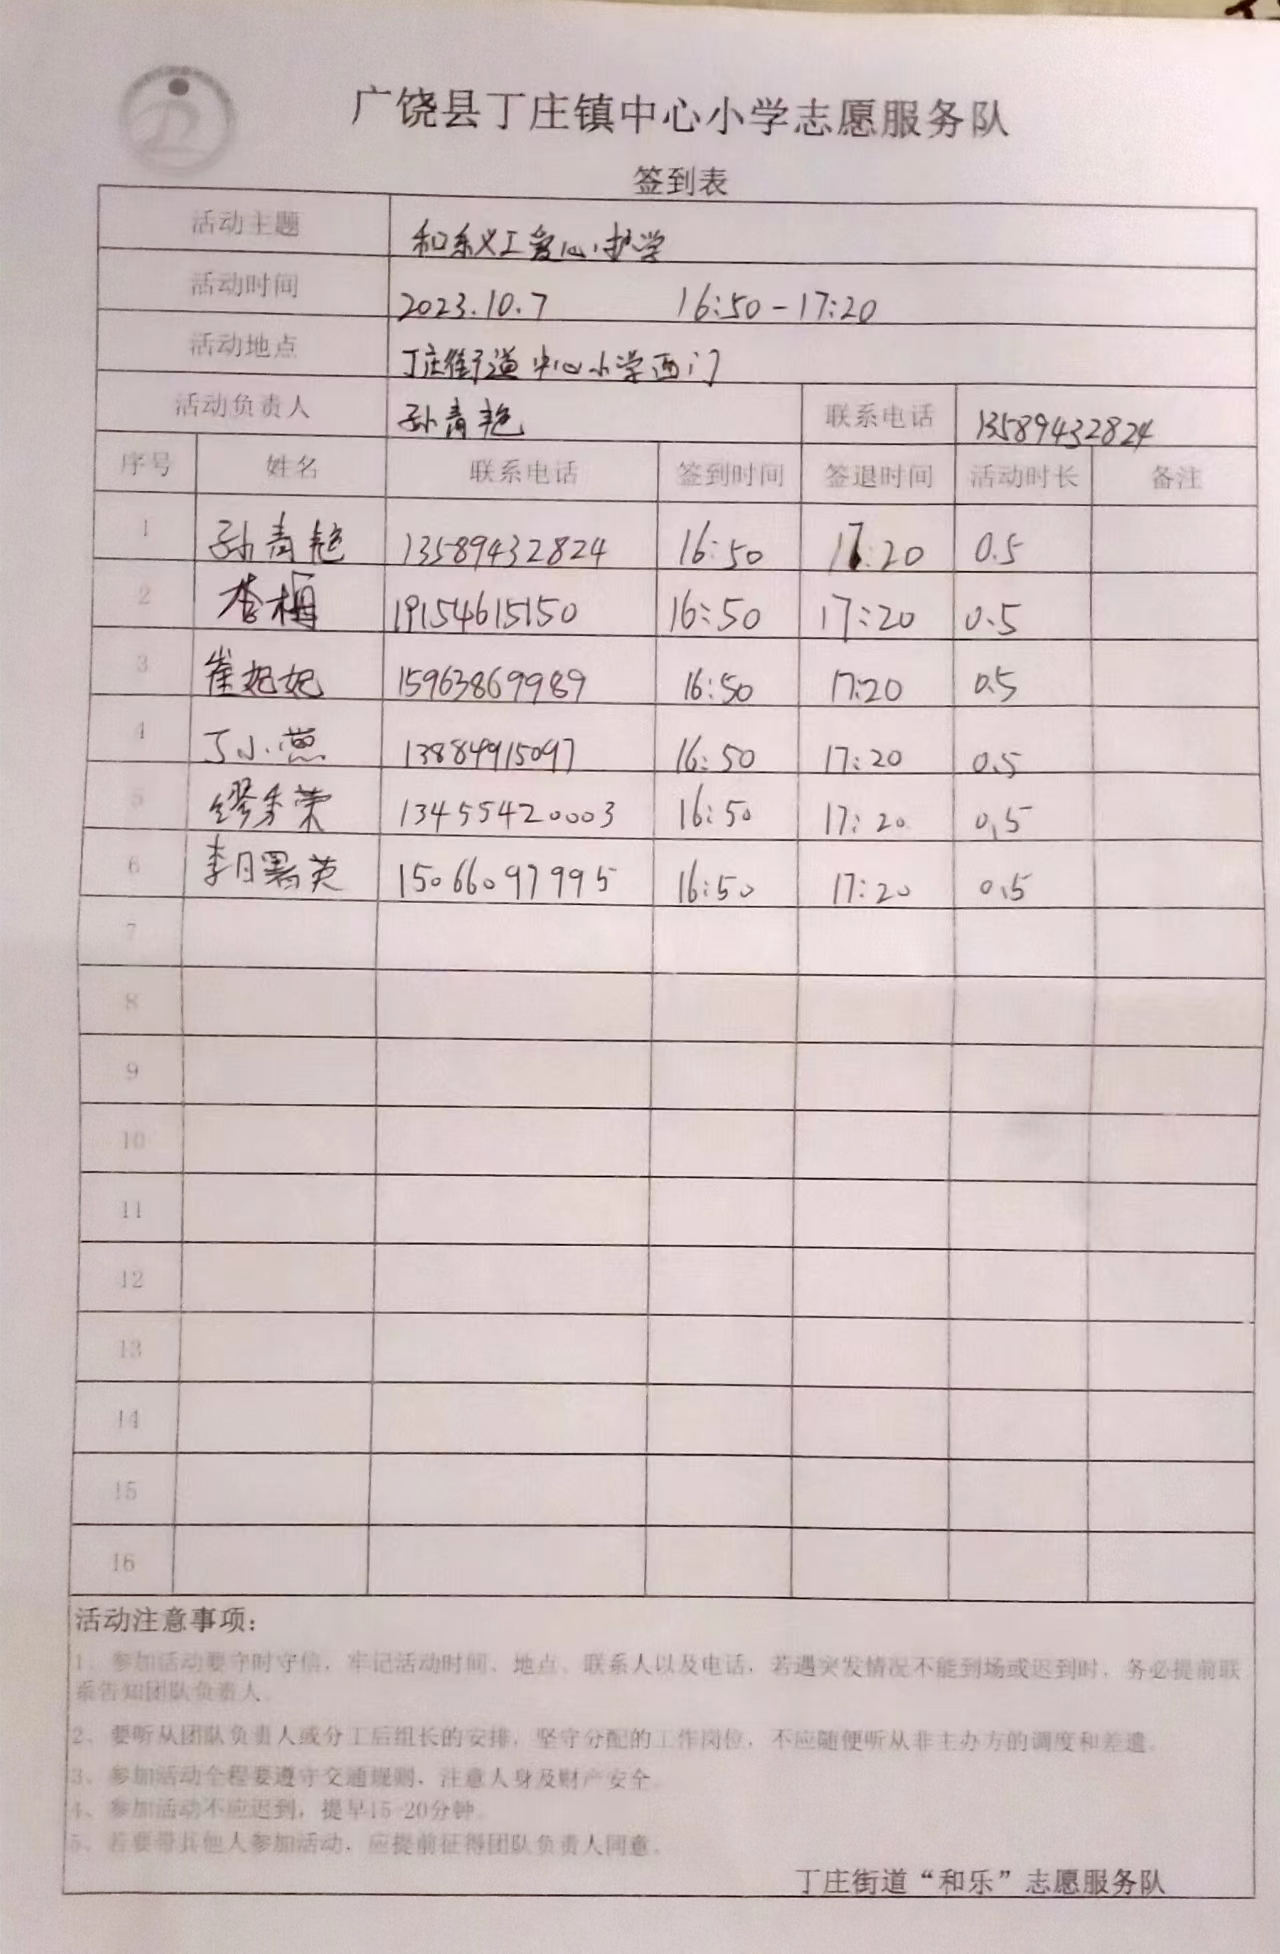 广饶县丁庄镇中心小学志愿服务队
签到表
活动主题 和乐义工爱心护学
活动时间 2023.10.7 16:50-17:20
活动地点 丁庄街道中心小学西门
活动负责人 孙青艳 联系电话 13589432824
序号 姓名 联系电话 签到时间 签退时间 活动时长 备注
1 孙青艳 13589432824 16:50 17:20 0.5
2 李梅 19154615150 16:50 17:20 0.5
3 崔妃妃 15963869989 16:50 17:20 0.5
4 丁小蕊 13884915097 16:50 17:20 0.5
5 缪秀荣 13455420003 16:50 17:20 0.5
6 李月英 15066097995 16:50 17:20 0.5
7
8
9
10
11
12
13
14
15
16
活动注意事项：
1、参加活动要守时守信，牢记活动时间、地点、联系人以及电话，若遇突发情况不能到场或迟到时，务必提前联
系告知团队负责人。
2、要听从团队负责人或分工后组长的安排，坚守分配的工作岗位，不应随便听从非主办方的调度和差遣。
3、参加活动全程要遵守交通规则，注意人身及财产安全。
4、参加活动不应迟到，提早15-20分钟。
5、若要带其他人参加活动，应提前征得团队负责人同意。
丁庄街道“和乐”志愿服务队